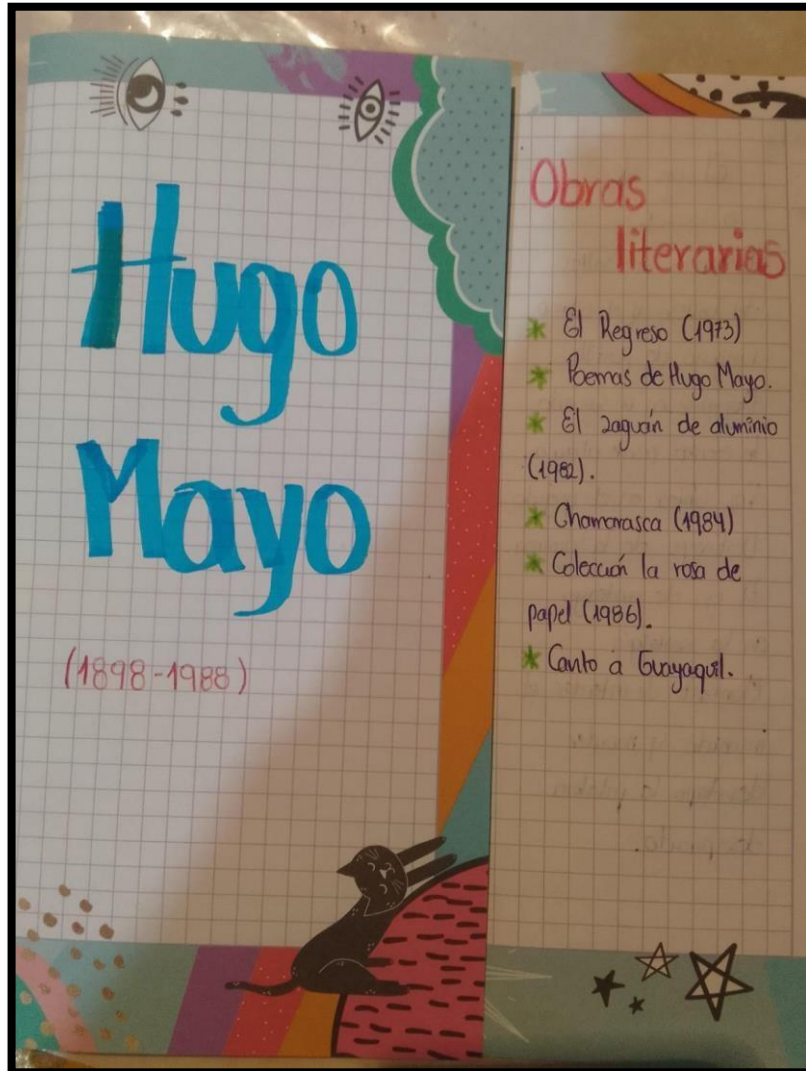 Hugo
Mayo
(1898-1988)
Obras
literarias
* El Regreso (1973)
* Poemas de Hugo Mayo.
* El zaguán de aluminio
(1982).
* Chamarasca (1984)
* Colección la rosa de
papel (1986).
* Canto a Guayaquil.